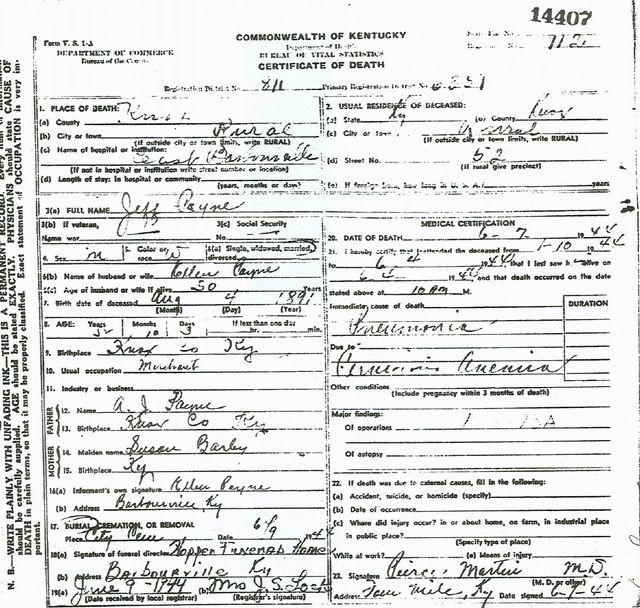 14407
Form V. S. 1-A
DEPARTMENT OF COMMERCE
Bureau of the Census
COMMONWEALTH OF KENTUCKY
Department of Health
BUREAU OF VITAL STATISTICS
CERTIFICATE OF DEATH
State File No.
Registrar's No. 112
Registration District No. 811 Primary Registration District No. 6351
1. PLACE OF DEATH:
(a) County Knox
(b) City or town Rural
(If outside city or town limits, write RURAL)
(c) Name of hospital or institution:
East Barbourville
(If not in hospital or institution write street number or location)
(d) Length of stay: In hospital or community
(years, months or days)
2. USUAL RESIDENCE OF DECEASED:
(a) State Ky (b) County Knox
(c) City or town Rural
(If outside city or town limits, write RURAL)
(d) Street No. 52
(If rural give precinct)
(e) If foreign born, how long in U. S. A.? years
3(a) FULL NAME Jeff Payne
3(b) If veteran, 3(c) Social Security
Name war No.
4. Sex m 5. Color or race W 6(a) Single, widowed, married, divorced
6(b) Name of husband or wife Ellen Payne
6(c) Age of husband or wife if alive 50 Years
7. Birth date of deceased Aug 4 1891
(Month) (Day) (Year)
8. AGE: Years Months Days If less than one day
52 10 3 hr. min.
9. Birthplace Knox Co Ky
10. Usual occupation Merchant
11. Industry or business
FATHER
12. Name A. J. Payne
13. Birthplace Knox Co Ky
MOTHER
14. Maiden name Susan Barley
15. Birthplace Ky
16(a) Informant's own signature Ellen Payne
(b) Address Barbourville Ky
17. BURIAL, CREMATION, OR REMOVAL
Place City Cem Date 6/9 1944
18(a) Signature of funeral director Hopper Funeral Home
(b) Address Barbourville Ky
19(a) June 9-1944 (b) Mrs J. S. Lock
(Date received by local registrar) (Registrar's signature)
MEDICAL CERTIFICATION
20. DATE OF DEATH 6-7 1944
21. I hereby certify that I attended the deceased from 1-10 1944
to 6-4 1944 that I last saw h alive on
6-4 1944 and that death occurred on the date
stated above at 10 AM M.
Immediate cause of death
DURATION
Pneumonia
Due to
Pernicious Anemia
Other conditions
(Include pregnancy within 3 months of death)
Major findings:
Of operations
Of autopsy
22. If death was due to external causes, fill in the following:
(a) Accident, suicide, or homicide (specify)
(b) Date of occurrence
(c) Where did injury occur? in or about home, on farm, in industrial place
in public place?
(Specify type of place)
While at work? (e) Means of injury
23. Signature Pierce Martin M.D.
(M. D. or other)
Address Four Mile, Ky Date signed 6-7-44
N. B.—WRITE PLAINLY WITH UNFADING INK—THIS IS A PERMANENT RECORD. Every item of information
should be carefully supplied. AGE should be stated EXACTLY. PHYSICIANS should state CAUSE OF
DEATH in plain terms, so that it may be properly classified. Exact statement of OCCUPATION is very im-
portant.